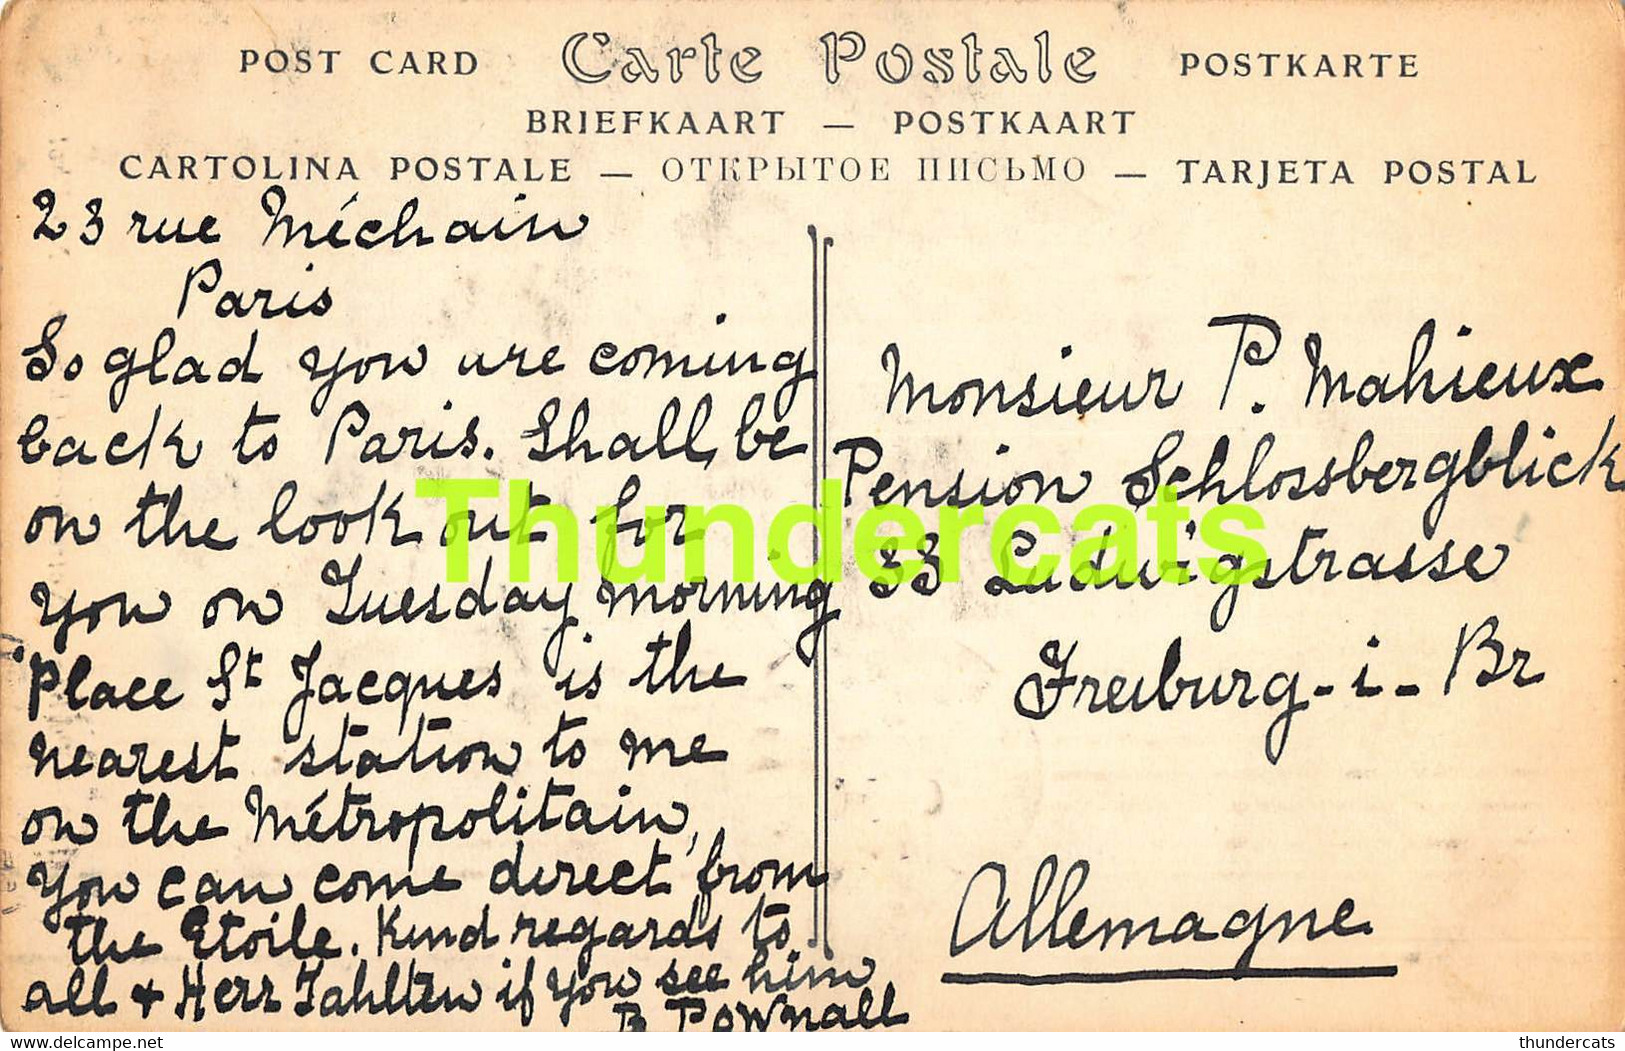 POST CARD Carte Postale POSTKARTE
BRIEFKAART — POSTKAART
CARTOLINA POSTALE — ОТКРЫТОЕ ПИСЬМО — TARJETA POSTAL
23 rue Méchain
Paris
So glad you are coming
back to Paris. Shall be
on the look out for
you on Tuesday morning
Place St Jacques is the
nearest station to me
on the Métropolitain,
you can come direct from
the Etoile. Kind regards to
all + Herr if you see him
B Pownall
Monsieur P. Mahieux
Pension Schlossbergblick
33 Ludwigstrasse
Freiburg-i-Br
Allemagne
Thundercats
thundercats
thundercats.com